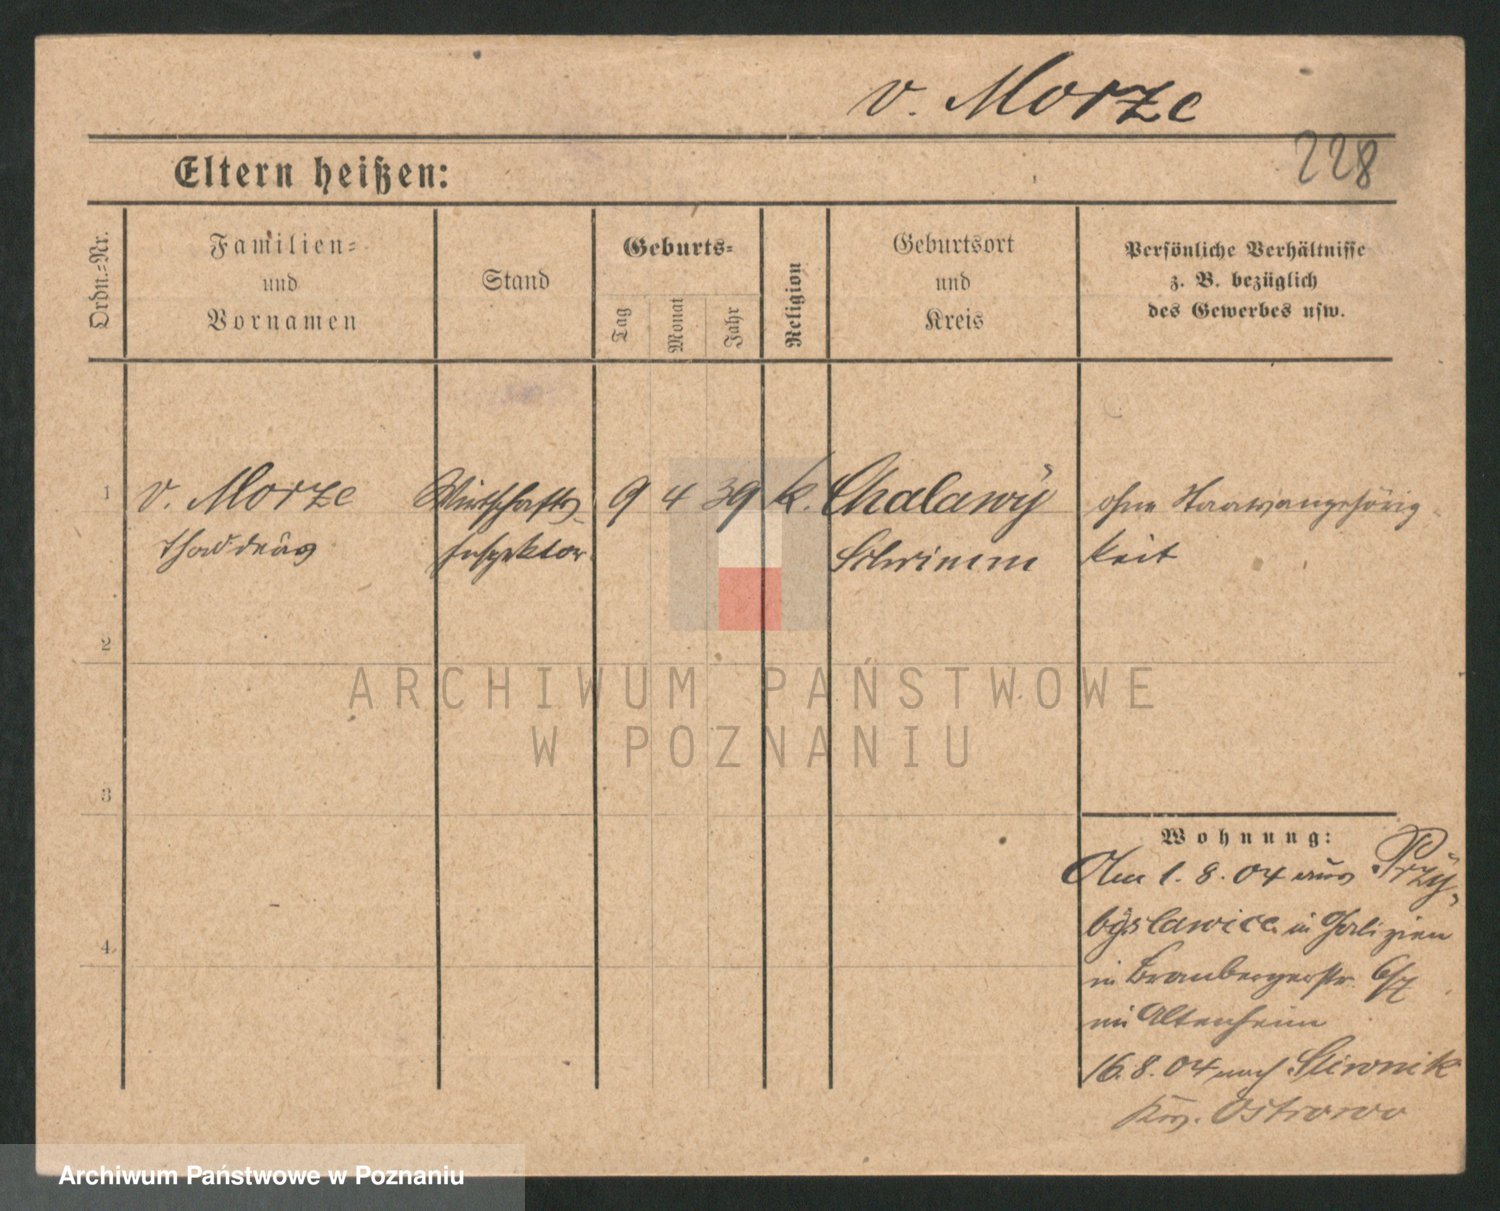 v. Morze
228
Eltern heißen:
Ordn.-Nr.
Familien-
und
Vornamen
Stand
Geburts-
Tag
Monat
Jahr
Religion
Geburtsort
und
Kreis
Persönliche Verhältnisse
z. B. bezüglich
des Gewerbes usw.
1 v. Morze Wirtschafts- 9 4 39 k. Chalawÿ ohne Staatsangehörig-
Thaddeus Inspektor Schrimm keit
2
3
4
ARCHIWUM PAŃSTWOWE
W POZNANIU
Wohnung:
Am 1. 8. 04 aus Przÿ-
bÿslawice in Galizien
in 6/7
im Altenheim
16. 8. 04 nach Sliwnik
Krs. Ostrowo
Archiwum Państwowe w Poznaniu